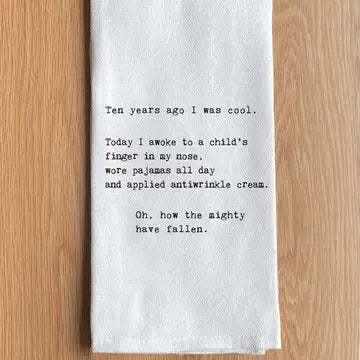 Ten years ago I was cool.
Today I awoke to a child's
finger in my nose,
wore pajamas all day
and applied antiwrinkle cream.
Oh, how the mighty
have fallen.